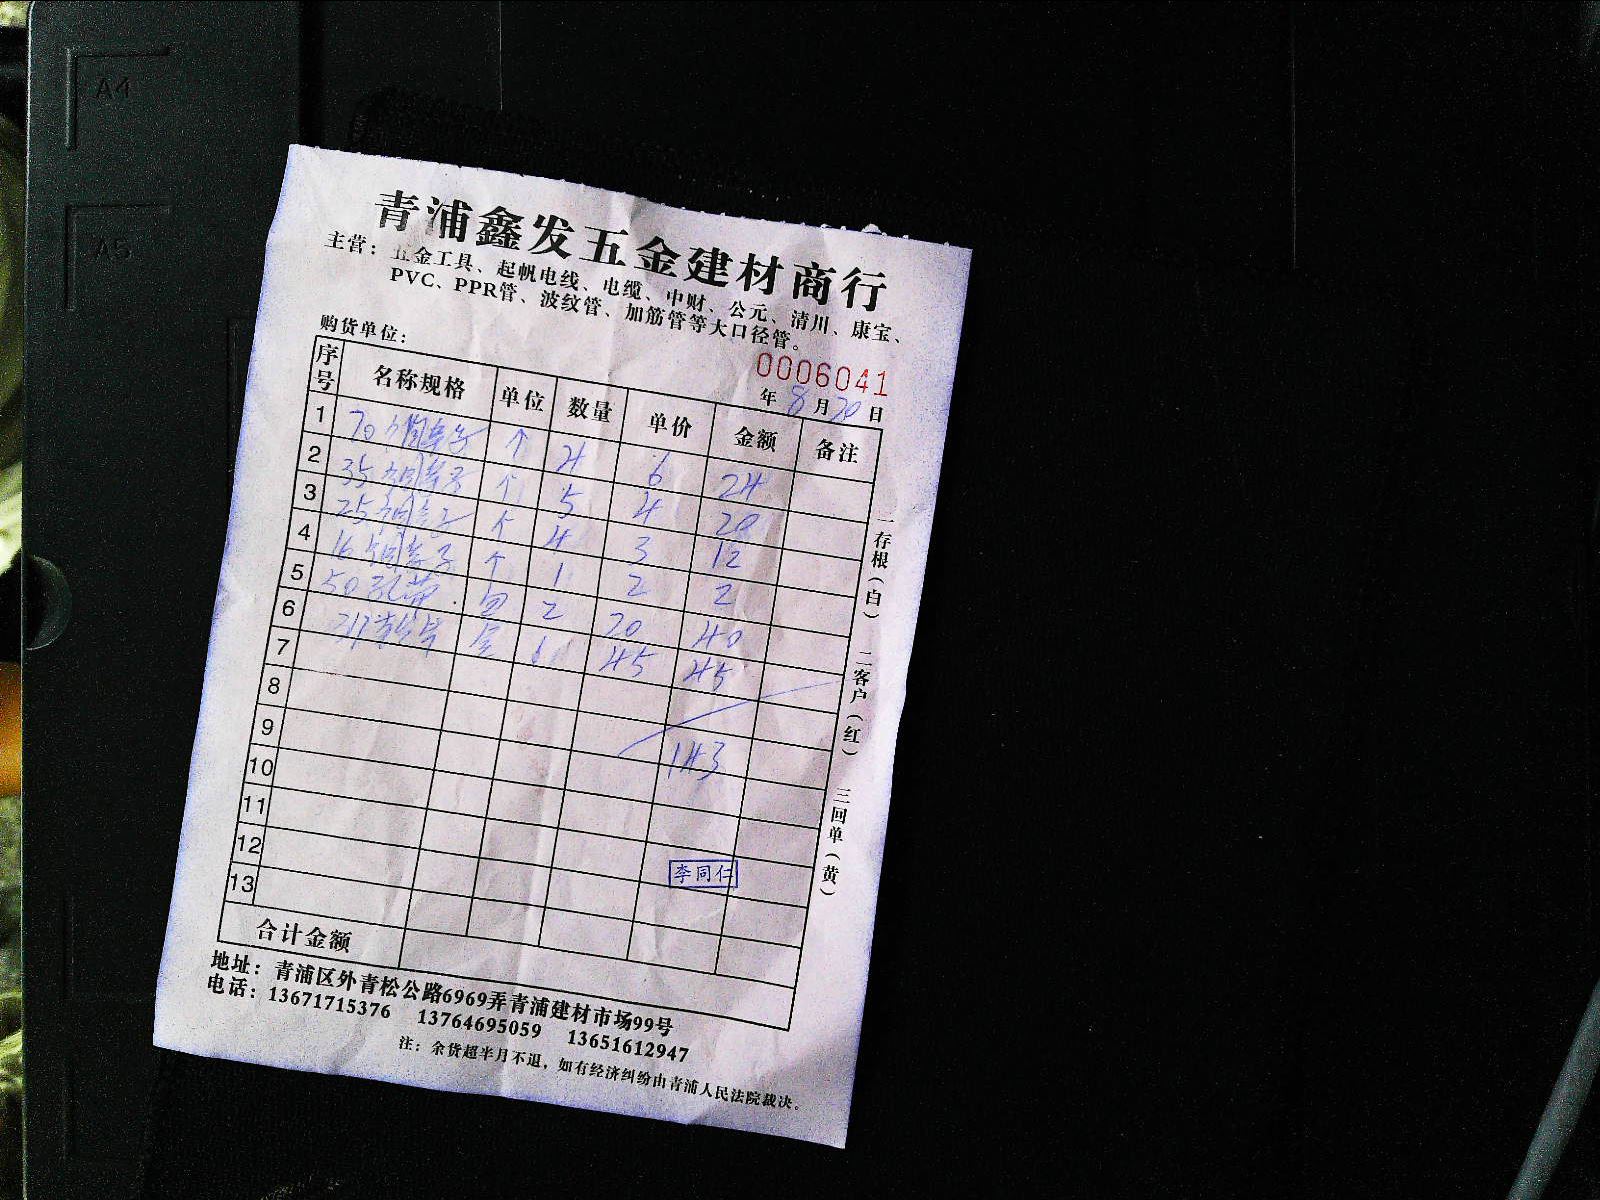 A4
A5
青浦鑫发五金建材商行
主营：五金工具、起帆电线、电缆、中财、公元、清川、康宝、
PVC、PPR管、波纹管、加筋管等大口径管。
0006041
购货单位：
年 8 月 30 日
序号 名称规格 单位 数量 单价 金额 备注
1 70铜鼻子 个 4 6 24
2 35铜鼻子 个 5 4 20
3 25铜鼻子 个 4 3 12
4 16铜鼻子 个 1 2 2
5 50 2 20 40
6 1 45 45
7
8
9 143
10
11
12 李同仁
13
合计金额
一存根（白） 二客户（红） 三回单（黄）
地址：青浦区外青松公路6969弄青浦建材市场99号
电话：13671715376 13764695059 13651612947
注：余货超半月不退，如有经济纠纷由青浦人民法院裁决。